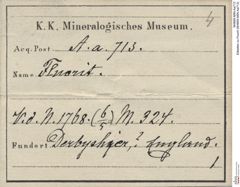 4
K. K. Mineralogisches Museum.
Acq. Post A. a. 713.
Name Fluorit.
V. d. N. 1768. (6/2) M. 324.
Fundort Derbyshire, ? England.
1